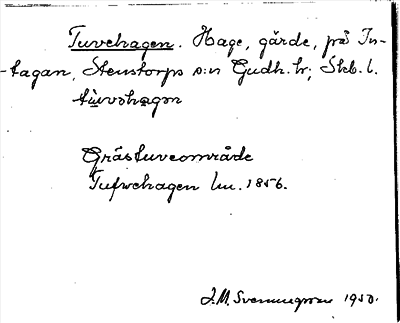 Tuvehagen. Hage, gärde, på In-
-tagan, Stenstorps s:n Gudh. hr; Skb. l.
tùvəhagən
Grästuveområde
Tufwehagen lm. 1856.
J.M. Svenningsson 1950.